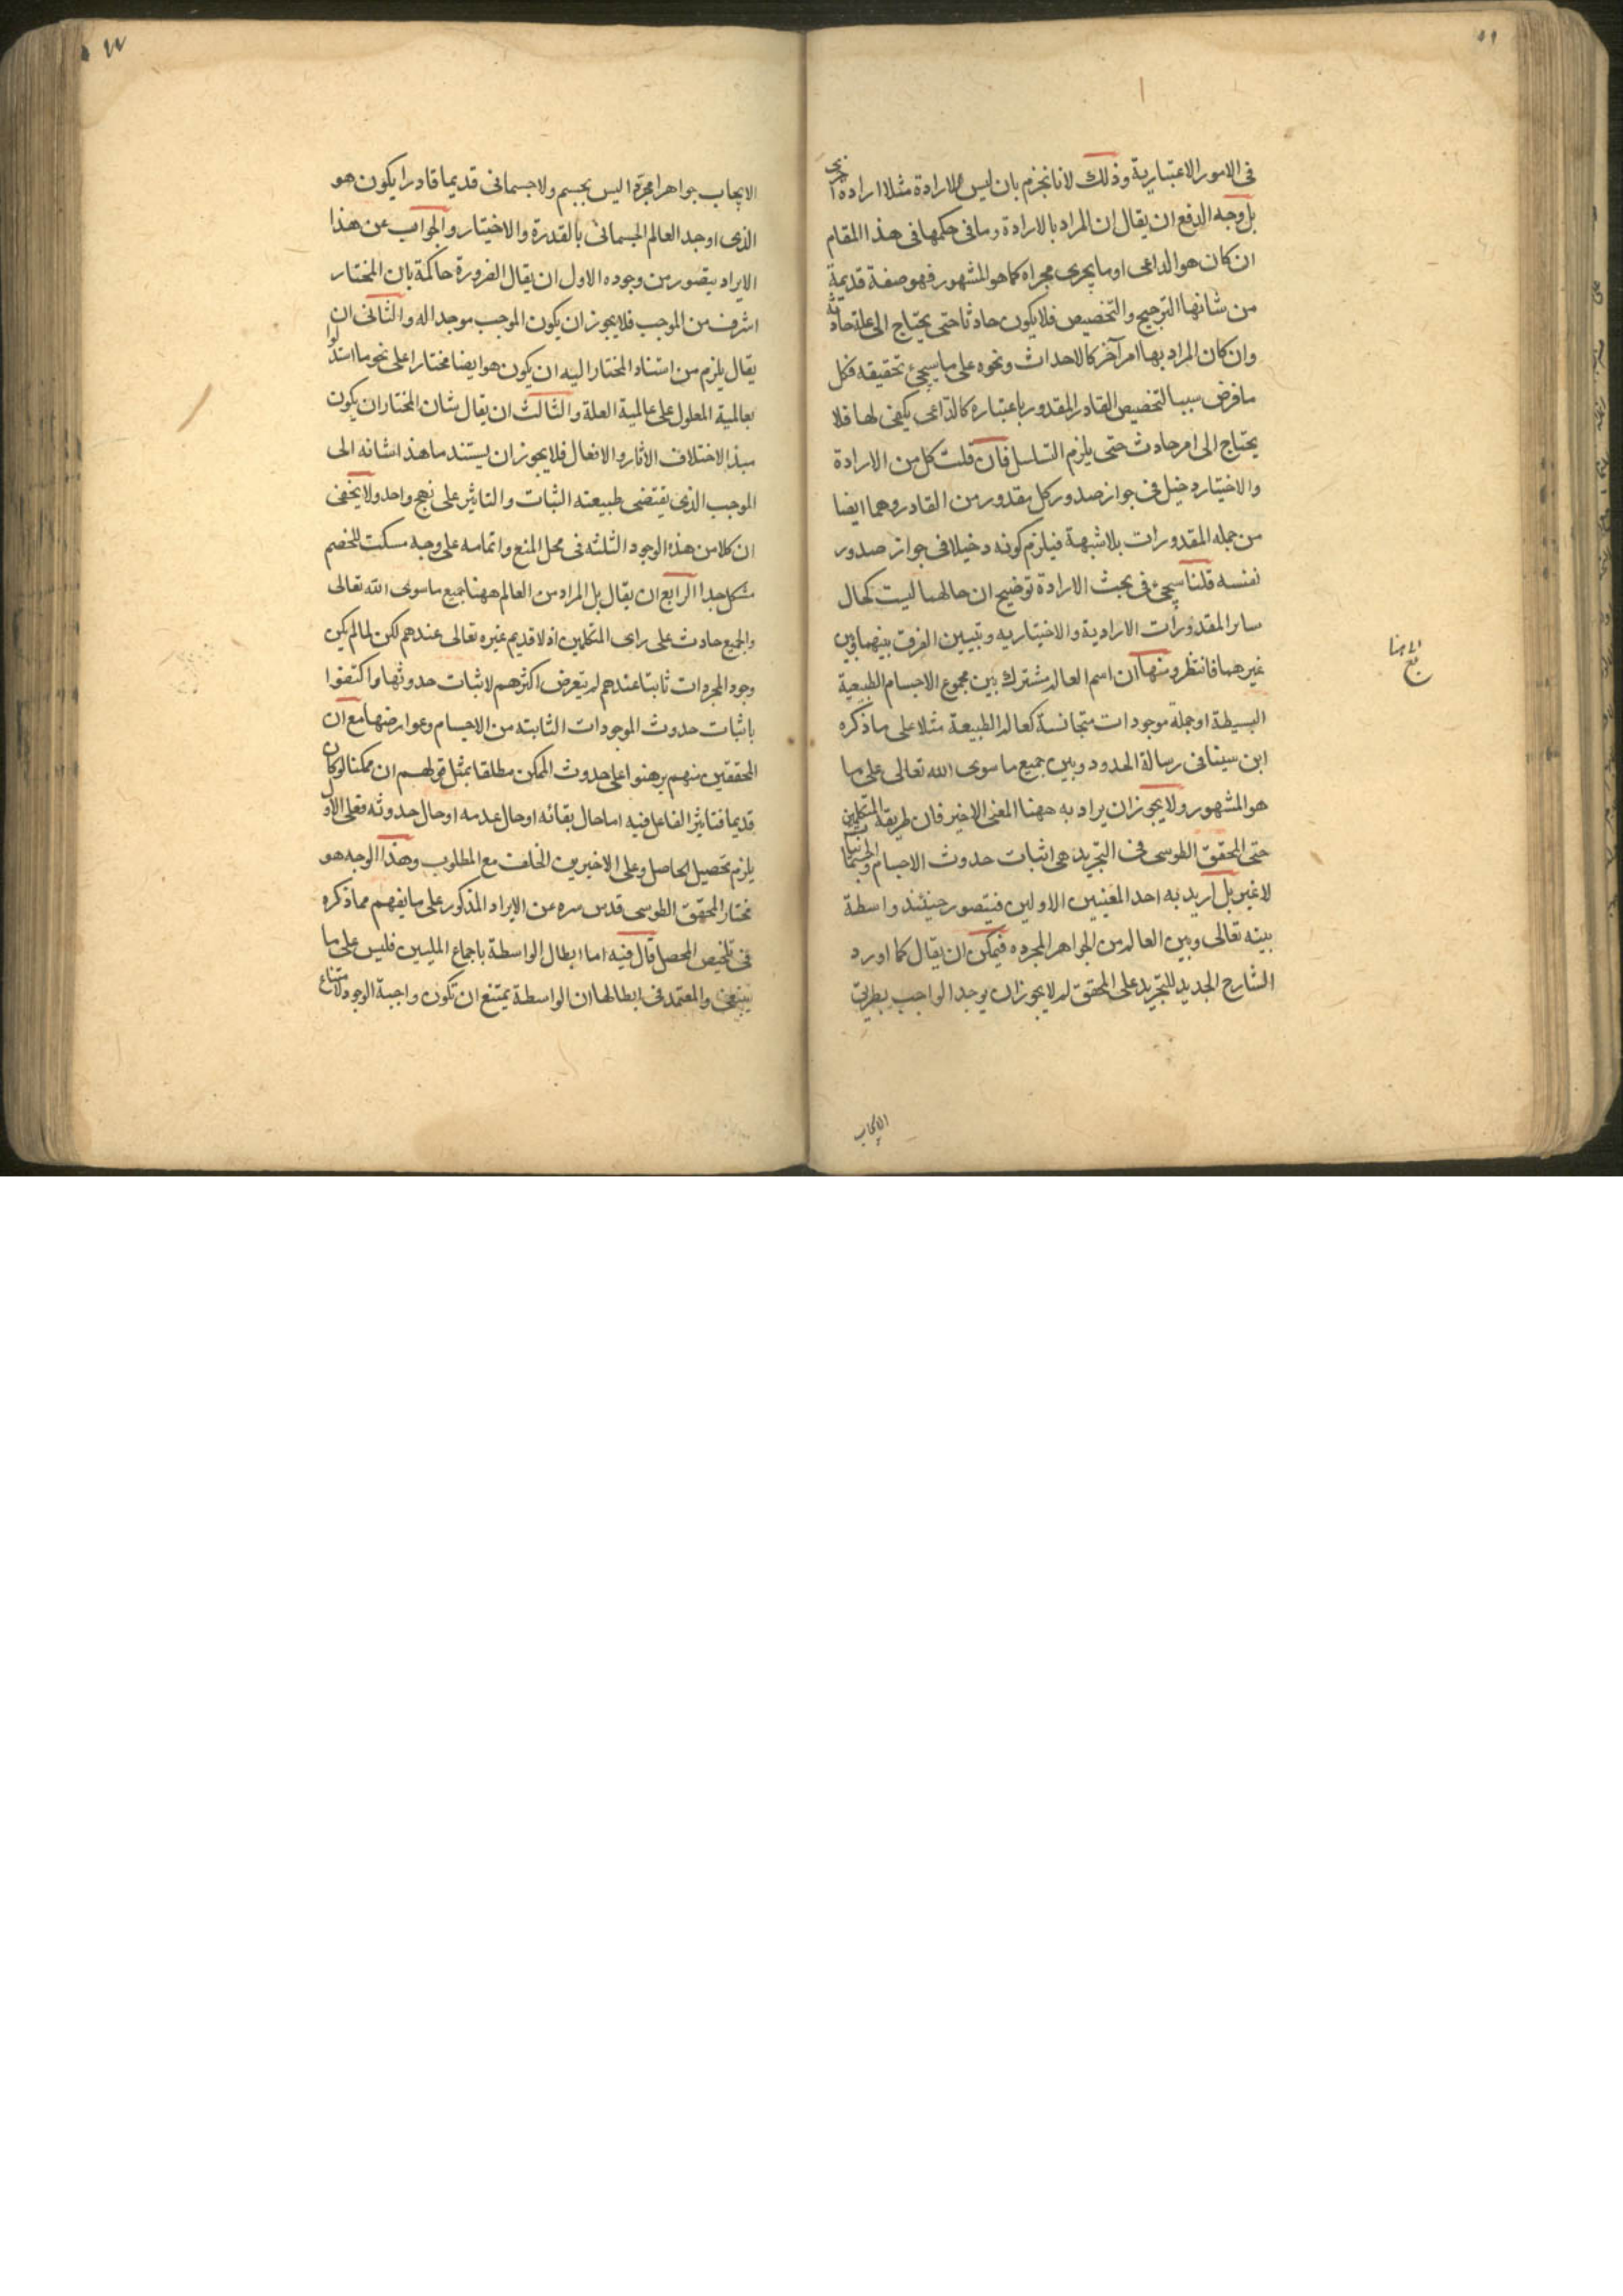 فى الامور الاعتبارية وذلك لانا نجزم بان ليس الارادة مثلا ارادة اخرى
بل وجه الدفع ان يقال ان المراد بالارادة وما فى حكمها فى هذا المقام
ان كان هو الداعى او ما يجرى مجراه كما هو المشهور فهو صفة قديمة
من شانها الترجيح والتخصيص فلا يكون حادثا حتى يحتاج الى علة حادثة
وان كان المراد بها امر آخر كالاحداث ونحوه على ما سيجئ تحقيقه فكل
ما فرض سببا لتخصيص القادر المقدور باعتباره كالداعى يكفى لها فلا
يحتاج الى امر حادث حتى يلزم التسلسل فان قلت كل من الارادة
والاختيار دخيل فى جواز صدور كل مقدور من القادر وهما ايضا
من جمله المقدورات بلا شبهة فيلزم كونه دخيلا فى جواز صدور
نفسه قلنا سيجئ فى بحث الارادة توضيح ان حالهما ليت كحال
ساير المقدورات الارادية والاختياريه وتبيين الفرق بينهما وبين
غيرهما فانتظر ومنها ان اسم العالم مشترك بين مجموع الاجسام الطبيعية
البسيطة او جملة موجودات متجانسة كعالم الطبيعة مثلا على ما ذكره
ابن سينا فى رسالة الحدود وبين جميع ما سوى الله تعالى على ما
هو المشهور ولا يجوز ان يراد به ههنا المعنى الاخير فان طريقة المتكلمين
حتى المحقق الطوسى فى التجريد هى اثبات حدوث الاجسام والجسمانيات
لا غير بل اريد به احد المعنيين الاولين فيتصور حينئذ واسطة
بينه تعالى وبين العالم من الجواهر المجرده فيمكن ان يقال كما اورد
الشارح الجديد للتجريد على المحقق لم لا يجوز ان يوجد الواجب بطريق
الايجاب
الايجاب جواهرا مجردا ليس بجسم ولا جسمانى قديما قادرا يكون هو
الذى اوجد العالم الجسمانى بالقدرة والاختيار والجواب عن هذا
الايراد يتصور من وجوه الاول ان يقال الضرورة حاكمة بان المختار
اشرف من الموجب فلا يجوز ان يكون الموجب موجدا له والثانى ان
يقال يلزم من استناد المختار اليه ان يكون هو ايضا مختارا على نحو ما استدلوا
بعالمية المعلول على عالمية العلة والثالث ان يقال شان المختار ان يكون
مبدا لاختلاف الآثار والافعال فلا يجوز ان يستند ما هذا شانه الى
الموجب الذى يقتضى طبيعته الثبات والتاثير على نهج واحد ولا يخفى
ان كلا من هذه الوجوه الثلثه فى محل المنع واتمامه على وجه مسكت للخصم
مشكل جدا الرابع ان يقال بل المراد من العالم ههنا جميع ما سوى الله تعالى
والجميع حادث على راى المتكلمين اذ لا قديم غيره تعالى عندهم لكن لما لم يكن
وجود المجردات ثابتا عندهم لم يتعرض اكثرهم لاثبات حدوثها واكتفوا
باثبات حدوث الموجودات الثابته من الاجسام وعوارضها مع ان
المحققين منهم برهنوا على حدوث الممكن مطلقا بمثل قولهم ان ممكنا لو كان
قديما فتاثير الفاعل فيه اما حال بقائه او حال عدمه او حال حدوثه فعلى الاول
يلزم تحصيل الحاصل وعلى الاخيرين الخلف مع المطلوب وهذا الوجه هو
مختار المحقق الطوسى قدس سره عن الايراد المذكور على ما يفهم مما ذكره
فى تلخيص المحصل قال فيه اما ابطال الواسطة باجماع المليين فليس على ما
ينبغى والمعتمد فى ابطالها ان الواسطة يمتنع ان تكون واجبة الوجود لامتناع